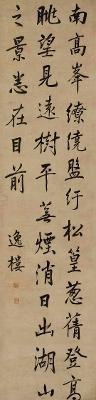 南高峯繚繞盤紆松篁蔥蒨登高
眺望見遠樹平蕪煙消日出湖山
之景恙在目前
逸樓